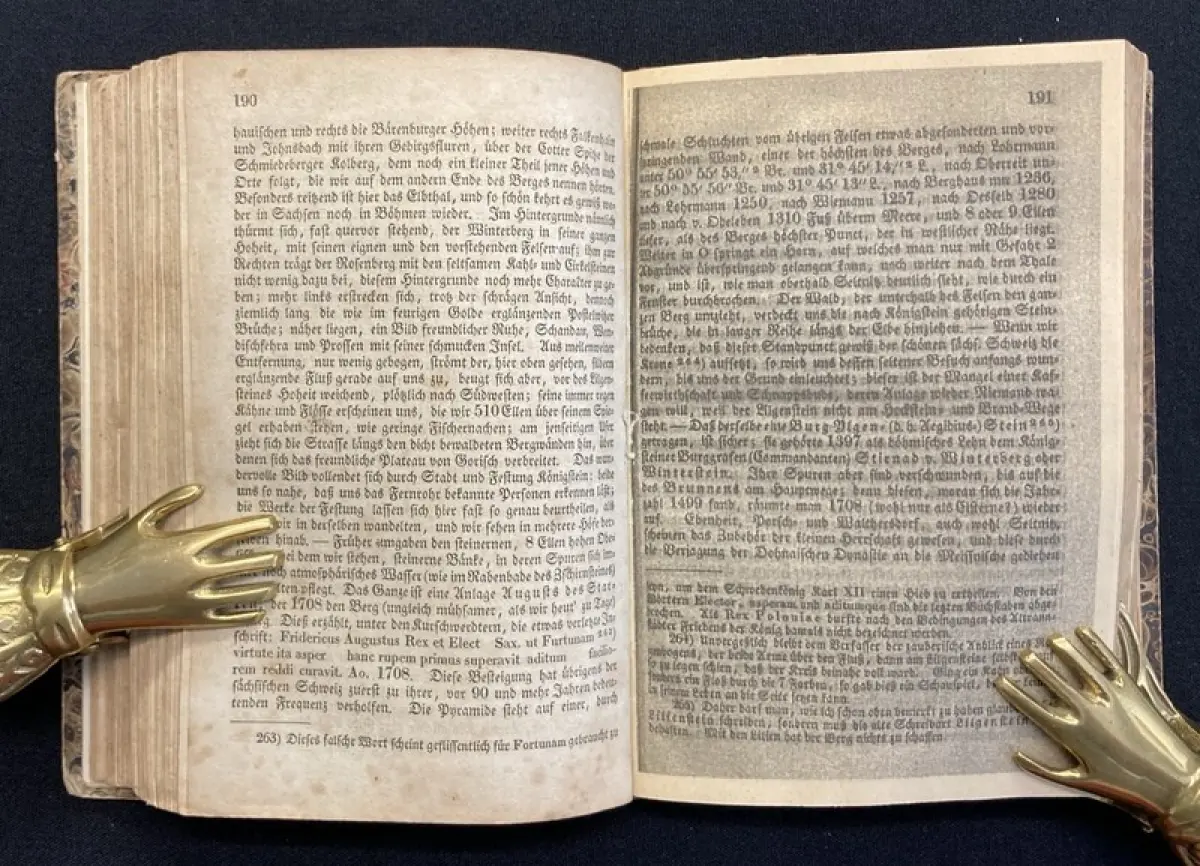 190
hauischen und rechts die Bärenburger Höhen; weiter rechts Falkenhain
und Johnsbach mit ihren Gebirgsfluren, über der Cotter Spitze der
Schmiedeberger Kolberg, dem noch ein kleiner Theil jener Höhen und
Orte folgt, die wir auf dem andern Ende des Berges nennen hörten.
Besonders reitzend ist hier das Elbthal, und so schön kehrt es gewiß we-
der in Sachsen noch in Böhmen wieder. Im Hintergrunde nämlich
thürmt sich, fast quervor stehend, der Winterberg in seiner ganzen
Hoheit, mit seinen eignen und den vorstehenden Felsen auf; ihm zur
Rechten trägt der Rosenberg mit den seltsamen Kahl- und Zirkelsteinen
nicht wenig dazu bei, diesem Hintergrunde noch mehr Charakter zu ge-
ben; mehr links erstrecken sich, trotz der schrägen Ansicht, dennoch
ziemlich lang die wie im feurigen Golde erglänzenden Postelwitzer
Brüche; näher liegen, ein Bild freundlicher Ruhe, Schandau, Wen-
dischfehra und Prossen mit seiner schmucken Insel. Aus meilenweiter
Entfernung, nur wenig gebogen, strömt der, hier oben gesehen, silbern
erglänzende Fluß gerade auf uns zu, beugt sich aber, vor des Lilgen-
steines Hoheit weichend, plötzlich nach Südwesten; seine immer regen
Kähne und Flösse erscheinen uns, die wir 510 Ellen über seinem Spie-
gel erhaben stehen, wie geringe Fischernachen; am jenseitigen Ufer
zieht sich die Strasse längs den dicht bewaldeten Bergwänden hin, über
denen sich das freundliche Plateau von Gorisch verbreitet. Das wun-
dervolle Bild vollendet sich durch Stadt und Festung Königstein: beide
uns so nahe, daß uns das Fernrohr bekannte Personen erkennen läßt;
die Werke der Festung lassen sich hier fast so genau beurtheilen, als
wir in derselben wandelten, und wir sehen in mehrere Höfe der-
hinab. — Früher umgaben den steinernen, 8 Ellen hohen Obe-
bei dem wir stehen, steinerne Bänke, in deren Spuren sich im-
noch atmosphärisches Wasser (wie im Rabenbade des Zschirnsteines)
pflegt. Das Ganze ist eine Anlage Augusts des Star-
der 1708 den Berg (ungleich mühsamer, als wir heut' zu Tage)
Dieß erzählt, unter den Kurschwerdtern, die etwas verletzte In-
schrift: Fridericus Augustus Rex et Elect Sax. ut Fortunam 263)
virtute ita asper hanc rupem primus superavit aditum facilio-
rem reddi curavit. Ao. 1708. Diese Besteigung hat übrigens der
sächsischen Schweiz zuerst zu ihrer, vor 90 und mehr Jahren bedeu-
tenden Frequenz verholfen. Die Pyramide steht auf einer, durch
263) Dieses falsche Wort scheint geflissentlich für Fortunam gebraucht zu
191
schmale Schluchten vom übrigen Felsen etwas abgesonderten und vor-
springenden Wand, einer der höchsten des Berges, nach Lohrmann
unter 50° 55' 53,"² Br. und 31° 45' 14,"² L., nach Oberreit un-
ter 50° 55' 56" Br. und 31° 45' 13" L., nach Berghaus nur 1236,
nach Lohrmann 1250, nach Wiemann 1257, nach Desfeld 1280
und nach v. Odeleben 1310 Fuß überm Meere, und 8 oder 9 Ellen
tiefer, als des Berges höchster Punct, der in westlicher Nähe liegt.
Weiter in O springt ein Horn, auf welches man nur mit Gefahr 2
Abgründe überspringend gelangen kann, noch weiter nach dem Thale
vor, und ist, wie man oberhalb Seitnitz deutlich sieht, wie durch ein
Fenster durchbrochen. Der Wald, der unterhalb des Felsen den gan-
zen Berg umzieht, verdeckt uns die nach Königstein gehörigen Stein-
brüche, die in langer Reihe längs der Elbe hinziehen. — Wenn wir
bedenken, daß dieser Standpunct gewiß der schönen sächs. Schweiz die
Krone 264) aufsetzt, so wird uns dessen seltener Besuch anfangs wun-
dern, bis uns der Grund einleuchtet; dieser ist der Mangel einer Kaf-
feewirthschaft und Schnappsbude, deren Anlage wieder Niemand wa-
gen will, weil der Lilgenstein nicht am Hockstein- und Brand-Wege
steht. — Daß derselbe eine Burg Ylgen- (d. h. Aegidius-) Stein 265)
getragen, ist sicher; sie gehörte 1397 als böhmisches Lehn dem König-
steiner Burggrafen (Commandanten) Stirnad v. Winterberg oder
Winterstein. Ihre Spuren aber sind verschwunden, bis auf die
des Brunnens am Hauptwege; denn diesen, woran sich die Jahr-
zahl 1499 fand, räumte man 1708 (wohl nur als Cisterne?) wieder
auf. Ebenheit, Porsch- und Walthersdorf, auch wohl Seitnitz,
scheinen das Zubehör der kleinen Herrschaft gewesen, und diese durch
die Verjagung der Dohnaischen Dynastie an die Meissnische gediehen
seyn, um dem Schwedenkönig Karl XII einen Hieb zu ertheilen. Von den
Wörtern Elector, asperam und aditumque sind die letzten Buchstaben abge-
brochen. Als Rex Poloniae durfte nach den Bedingungen des Altran-
städter Friedens der König damals nicht bezeichnet werden.
264) Unvergeßlich bleibt dem Verfasser der zauberische Anblick eines
bogens, der beide Arme über den Fluß, dann am Lilgensteine
so zu legen schien, daß der Kreis beinahe voll ward. Ging ein Kahn
sonders ein Floß durch die 7 Farben, so gab dieß ein Schauspiel,
in seinem Leben an die Seite setzen kann.
265) Daher darf man, wie ich schon oben bemerkt zu haben
Lilienstein schreiben, sondern muß die alte Schreibart Lilgenstein
behalten. Mit den Lilien hat der Berg nichts zu schaffen.